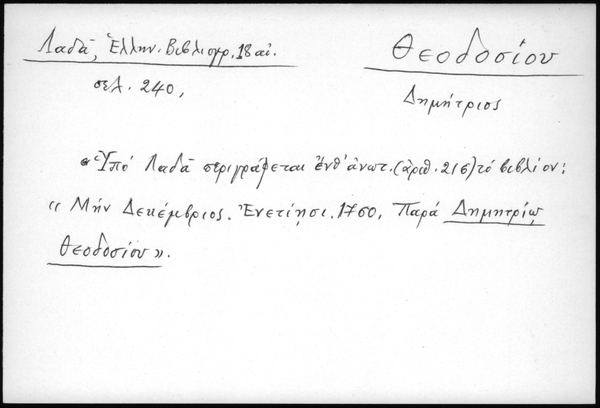 Λαδᾶ, Ἑλλην. Βιβλιογρ. 18 αἰ.
Θεοδοσίου
σελ. 240,
Δημήτριος
Ὑπό Λαδᾶ περιγράφεται ἐνθ' ἀνωτ. (ἀριθ. 215) τό βιβλίον:
« Μήν Δεκέμβριος. Ἐνετίησι. 1760, Παρά Δημητρίῳ
Θεοδοσίου ».